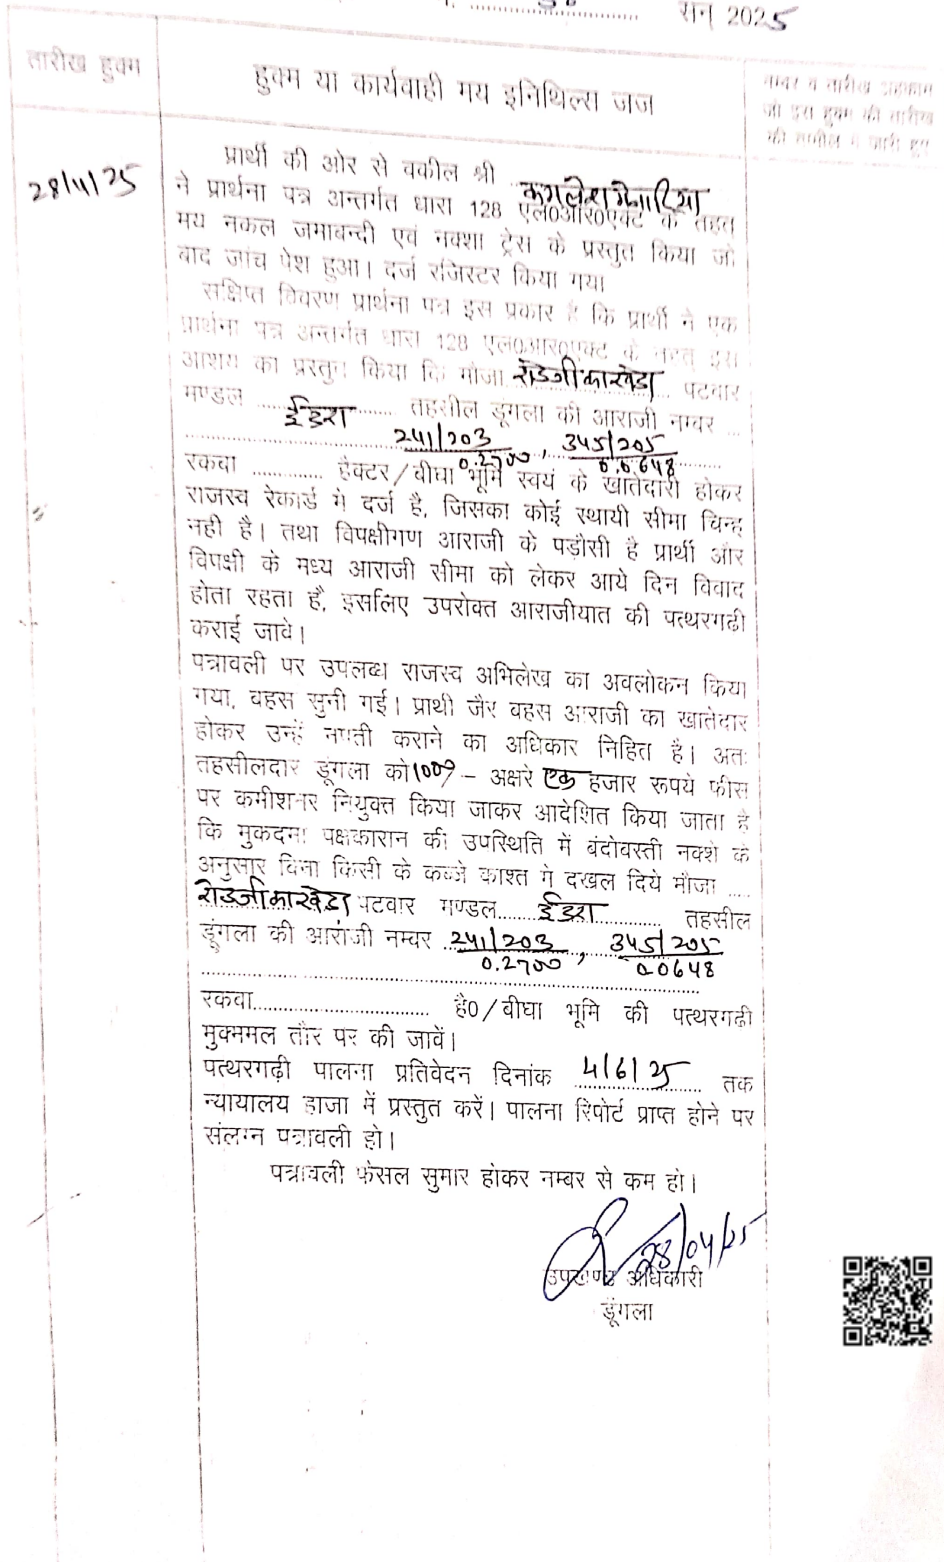 सन् 2025
तारीख हुक्म
हुक्म या कार्यवाही मय इनिशिल्स जज
नम्बर व तारीख अहकाम
जो इस हुक्म की तारीख
की तामील में जारी हुए
28/4/25
प्रार्थी की ओर से वकील श्री कमलेश मेनारिया
ने प्रार्थना पत्र अन्तर्गत धारा 128 एल0आर0एक्ट के तहत
मय नकल जमाबन्दी एवं नक्शा ट्रेस के प्रस्तुत किया जो
बाद जांच पेश हुआ। दर्ज रजिस्टर किया गया
संक्षिप्त विवरण प्रार्थना पत्र इस प्रकार है कि प्रार्थी ने एक
प्रार्थना पत्र अन्तर्गत धारा 128 एल0आर0एक्ट के तहत इस
आशय का प्रस्तुत किया कि मौजा रोडजीकाखेडा पटवार
मण्डल ईडरा तहसील डूंगला की आराजी नम्बर ...
241/203 , 345/205
0.2700 0.0648
रकवा ............ हैक्टर/बीघा भूमि स्वयं के खातेदारी होकर
राजस्व रेकार्ड में दर्ज है, जिसका कोई स्थायी सीमा चिन्ह
नही है। तथा विपक्षीगण आराजी के पड़ौसी है प्रार्थी और
विपक्षी के मध्य आराजी सीमा को लेकर आये दिन विवाद
होता रहता है, इसलिए उपरोक्त आराजीयात की पत्थरगढी
कराई जावे।
पत्रावली पर उपलब्ध राजस्व अभिलेख का अवलोकन किया
गया, वहस सुनी गई। प्राथी जैर वहस आराजी का खातेदार
होकर उन्हें नपती कराने का अधिकार निहित है। अतः
तहसीलदार डूंगला को 1000/- अक्षरे एक हजार रूपये फीस
पर कमीशनर नियुक्त किया जाकर आदेशित किया जाता है
कि मुकदमा पक्षकारान की उपस्थिति में बंदोवस्ती नक्शे के
अनुसार बिना किसी के कब्जे काश्त में दखल दिये मौजा ....
रोडजीकाखेडा पटवार मण्डल ईडरा तहसील
डूंगला की आराजी नम्बर 241/203 , 345/205
0.2700 0.0648
रकवा................................ है0/बीघा भूमि की पत्थरगढी
मुक्ममल तौर पर की जावें।
पत्थरगढ़ी पालना प्रतिवेदन दिनांक 4/6/25 तक
न्यायालय हाजा में प्रस्तुत करें। पालना रिपोर्ट प्राप्त होने पर
संलग्न पत्रावली हो।
पत्रावली फेसल सुमार होकर नम्बर से कम हो।
28/04/25
उपखण्ड अधिकारी
डूंगला